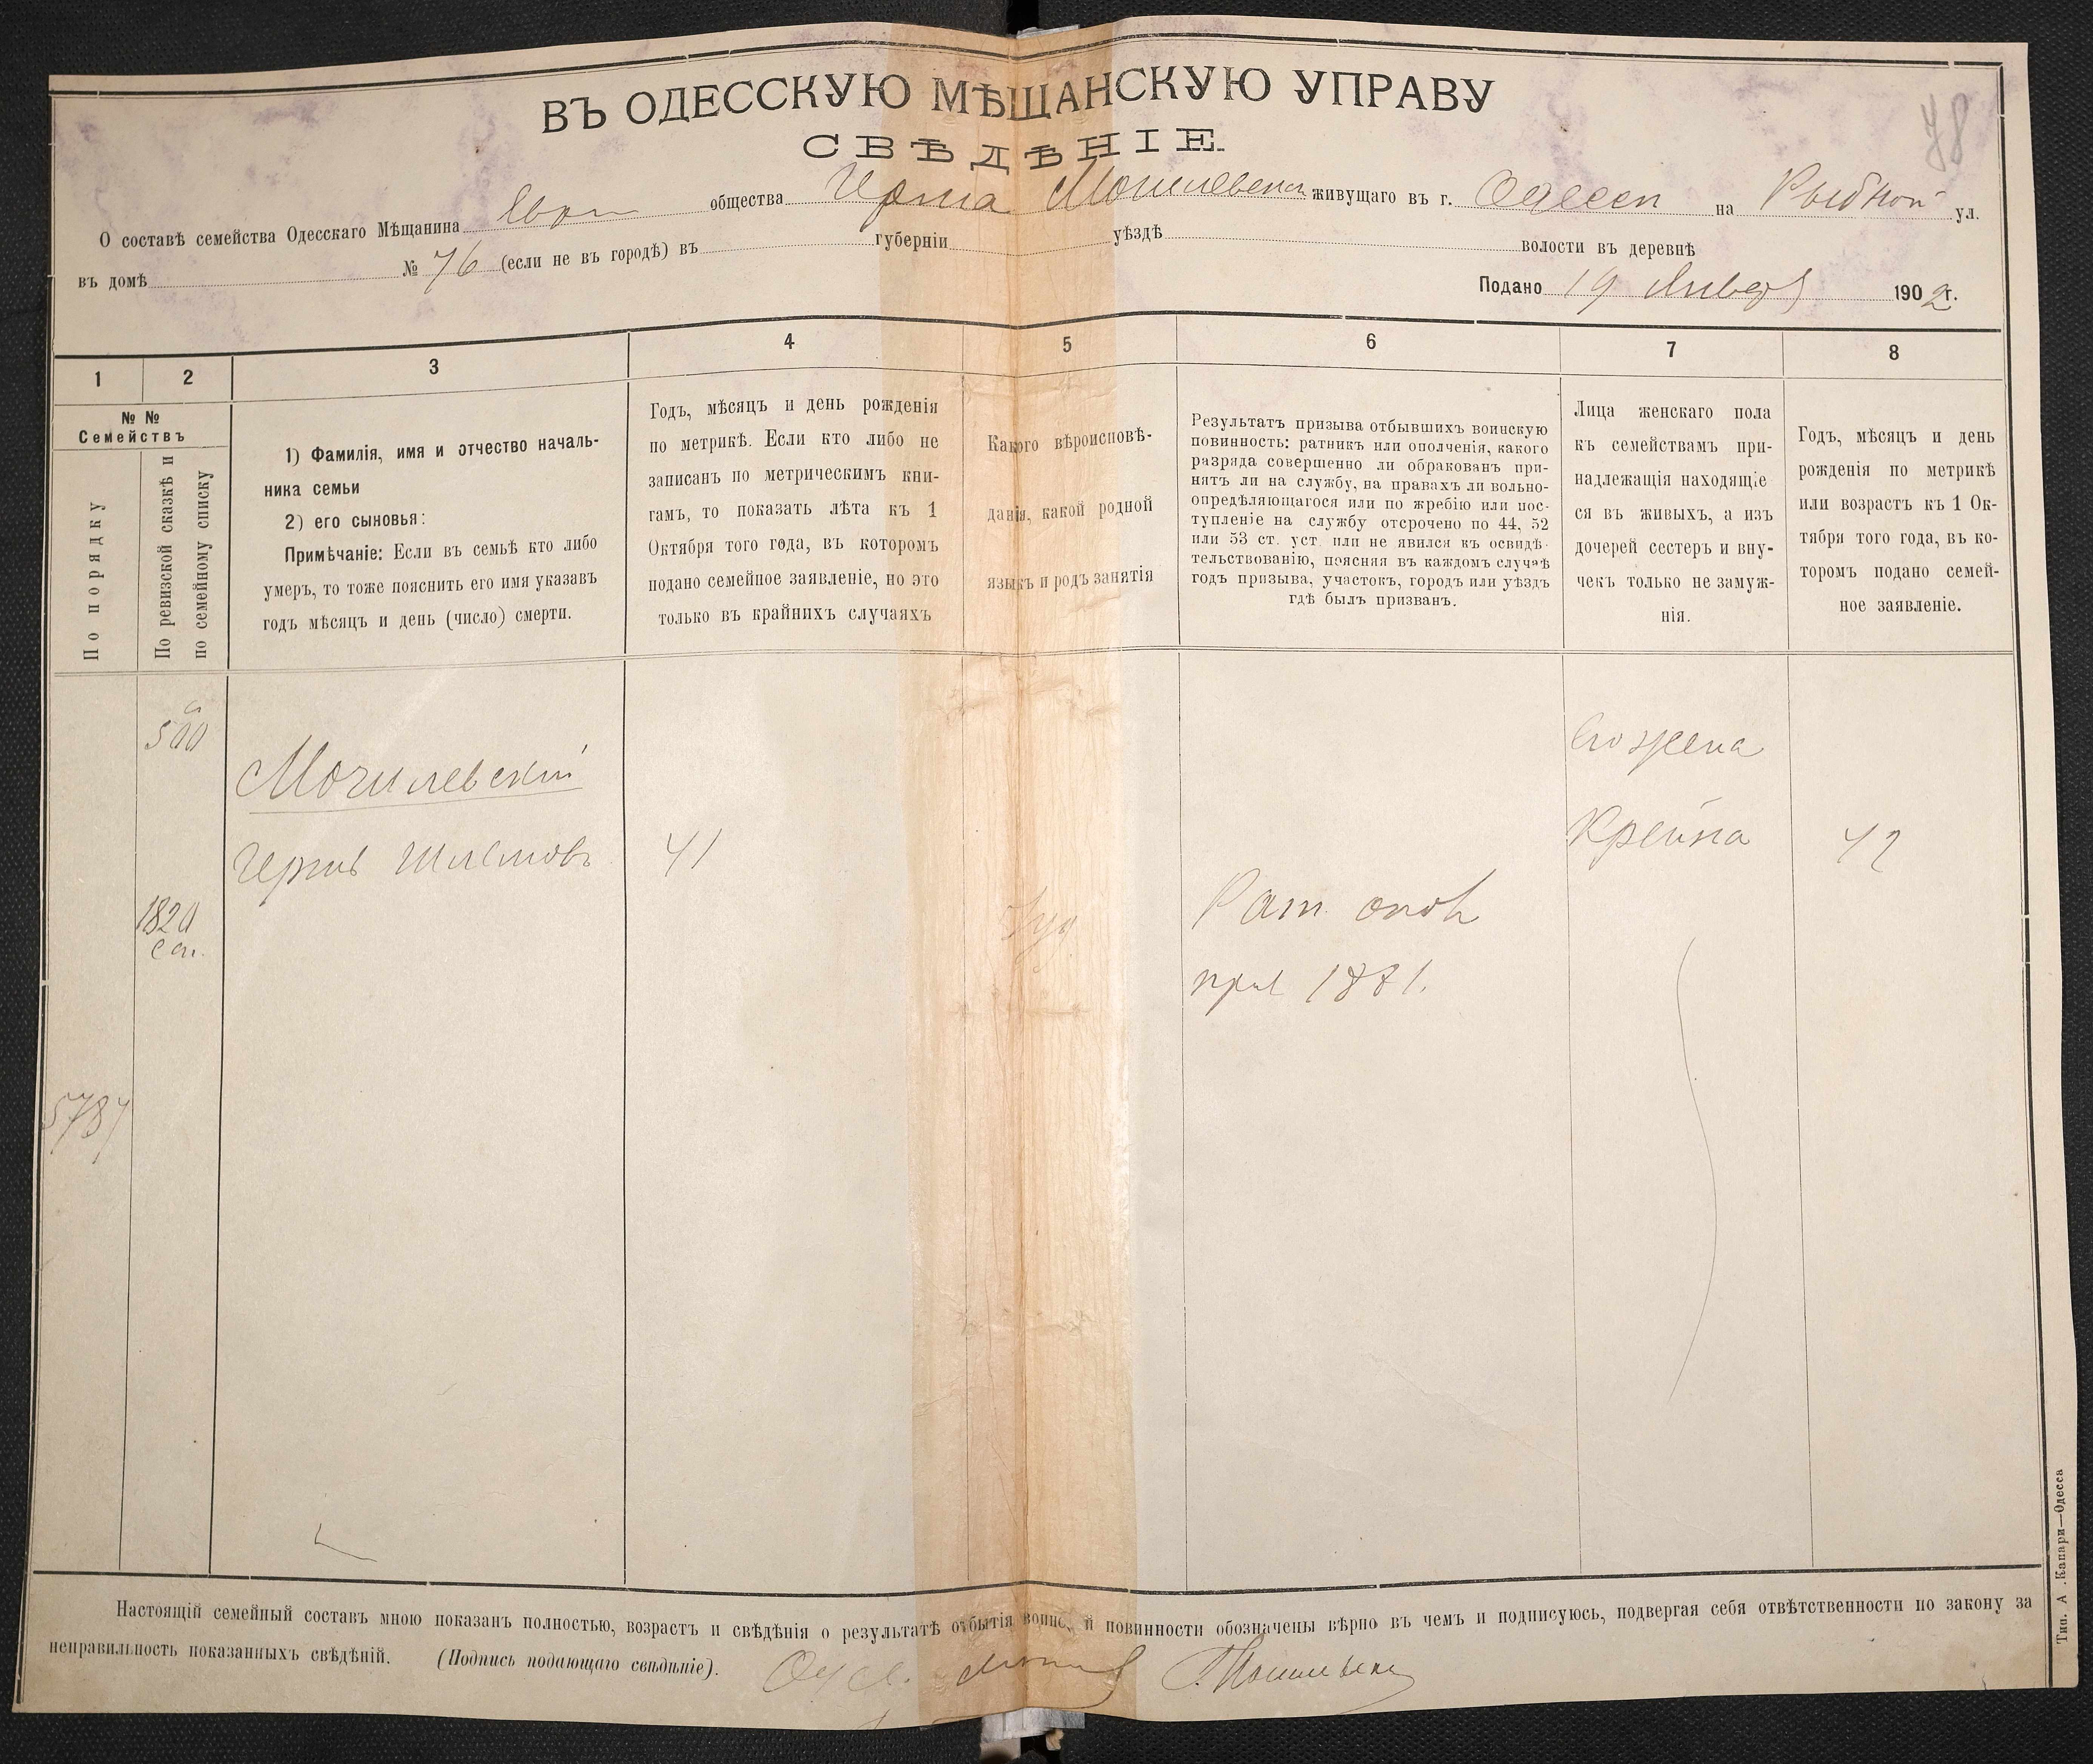 78
ВЪ ОДЕССКУЮ МѢЩАНСКУЮ УПРАВУ
СВѢДѢНІЕ.
О составѣ семейства Одесскаго Мѣщанина Евр общества Герша живущаго въ г. Одессѣ на Рыбной ул.
въ домѣ № 76 (если не въ городѣ) въ губерніи уѣздѣ волости въ деревнѣ
Подано 19 Января 1902 г.
1 2 3 4 5 6 7 8
№ №
Семействъ
По порядку
По ревизской сказкѣ и
по семейному списку
1) Фамилія, имя и отчество началь-
ника семьи
2) его сыновья:
Примѣчаніе: Если въ семьѣ кто либо
умеръ, то тоже пояснить его имя указавъ
годъ мѣсяцъ и день (число) смерти.
Годъ, мѣсяцъ и день рожденія
по метрикѣ. Если кто либо не
записанъ по метрическимъ кни-
гамъ, то показать лѣта къ 1
Октября того года, въ которомъ
подано семейное заявленіе, но это
только въ крайнихъ случаяхъ
Какого вѣроисповѣ-
данія, какой родной
языкъ и родъ занятія
Результатъ призыва отбывшихъ воинскую
повинность: ратникъ или ополченія, какого
разряда совершенно ли обракованъ при-
нятъ ли на службу, на правахъ ли вольно-
опредѣляющагося или по жребію или пос-
тупленіе на службу отсрочено по 44, 52
или 53 ст. уст. или не явился къ освидѣ-
тельствованію, поясняя въ каждомъ случаѣ
годъ призыва, участокъ, городъ или уѣздъ
гдѣ былъ призванъ.
Лица женскаго пола
къ семействамъ при-
надлежащія находящіе
ся въ живыхъ, а изъ
дочерей сестеръ и вну-
чекъ только не замуж-
нія.
Годъ, мѣсяцъ и день
рожденія по метрикѣ
или возрастъ къ 1 Ок-
тября того года, въ ко-
торомъ подано семей-
ное заявленіе.
500
Могилевскій
Гершъ Шлемовъ 41
1820
сп.
Іуд
Рат. опол
приз 1881.
Его жена
Крейна 42
5787
Настоящій семейный составъ мною показанъ полностью, возрастъ и свѣдѣнія о результатѣ отбытія воинс й повинности обозначены вѣрно въ чемъ и подписуюсь, подвергая себя отвѣтственности по закону за
неправильность показанныхъ свѣдѣній. (Подпись подающаго свѣдѣніе).
Тип. А. Капари—Одесса